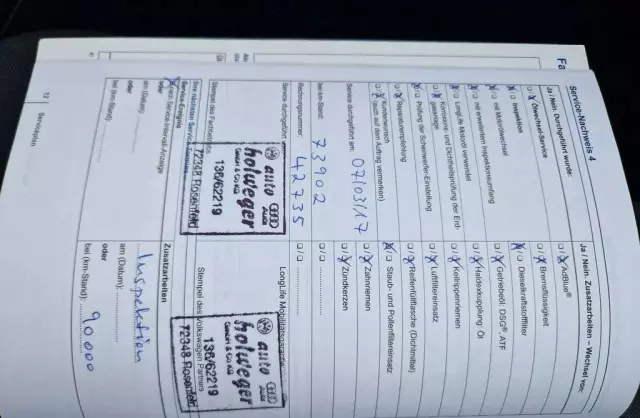 Service-Nachweis 4
Ja / Nein. Durchgeführt wurde:
Ölwechsel-Service
Inspektion
mit Motorölwechsel
mit erweitertem Inspektionsumfang
LongLife Motoröl verwendet
Korrosions- und Dichtheitsprüfung der Erdgasanlage
Prüfung der Scheinwerfer-Einstellung
Reparaturempfehlung
Kundenwunsch
(auch auf dem Auftrag vermerken)
Service durchgeführt am: 07/03/17
bei km-Stand: 73902
Rechnungsnummer: 42735
Service durchgeführt
Stempel des Fachbetriebs
auto
holweger
GmbH & Co KG
136/62219
72348 Rosenfeld
Ihre nächsten Service-Termine
Service-Ereignis
nach Service-Intervall-Anzeige
oder
am (Datum):
oder
bei (km-Stand):
Ja / Nein. Zusatzarbeiten – Wechsel von:
AdBlue®
Bremsflüssigkeit
Dieselkraftstofffilter
Getriebeöl: DSG® ATF
Haldexkupplung: Öl
Keilrippenriemen
Luftfiltereinsatz
Reifenfüllflasche (Dichtmittel)
Staub- und Pollenfiltereinsatz
Zahnriemen
Zündkerzen
LongLife Mobilitätsgarantie
Stempel des Volkswagen Partners
auto
holweger
GmbH & Co KG
136/62219
72348 Rosenfeld
Zusatzarbeiten
Inspektion
am (Datum):
oder
bei (km-Stand): 90.000
12
Serviceplan
Fa